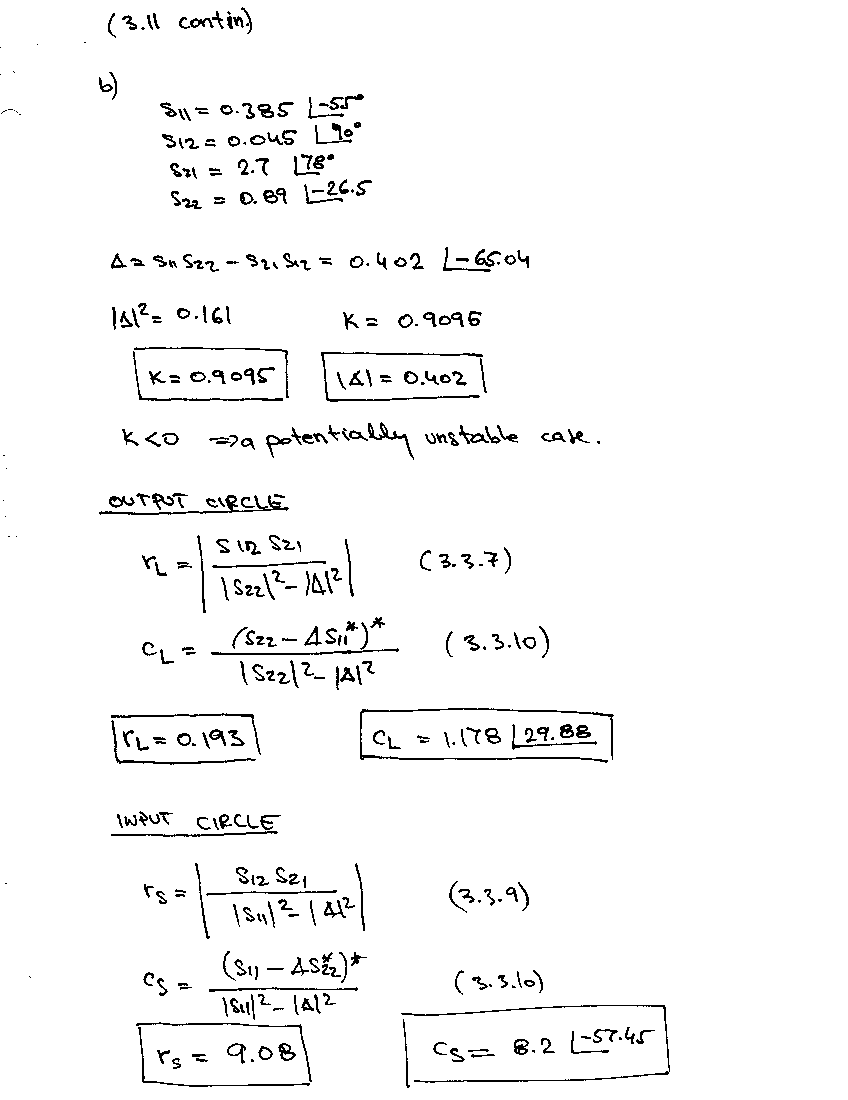 (3.11 contin.)
b)
S11 = 0.385 ∠-55°
S12 = 0.045 ∠90°
S21 = 2.7 ∠78°
S22 = 0.89 ∠-26.5
Δ = S11 S22 - S21 S12 = 0.402 ∠-65.04
|Δ|² = 0.161 K = 0.9095
K = 0.9095 |Δ| = 0.402
K<0 ⇒ a potentially unstable case.
OUTPUT CIRCLE
rL = | S12 S21 / |S22|² - |Δ|² | (3.3.7)
CL = (S22 - ΔS11*)* / |S22|² - |Δ|² (3.3.10)
rL = 0.193 CL = 1.178 ∠29.88
INPUT CIRCLE
rS = | S12 S21 / |S11|² - |Δ|² | (3.3.9)
CS = (S11 - ΔS22*)* / |S11|² - |Δ|² (3.3.10)
rS = 9.08 CS = 8.2 ∠-57.45